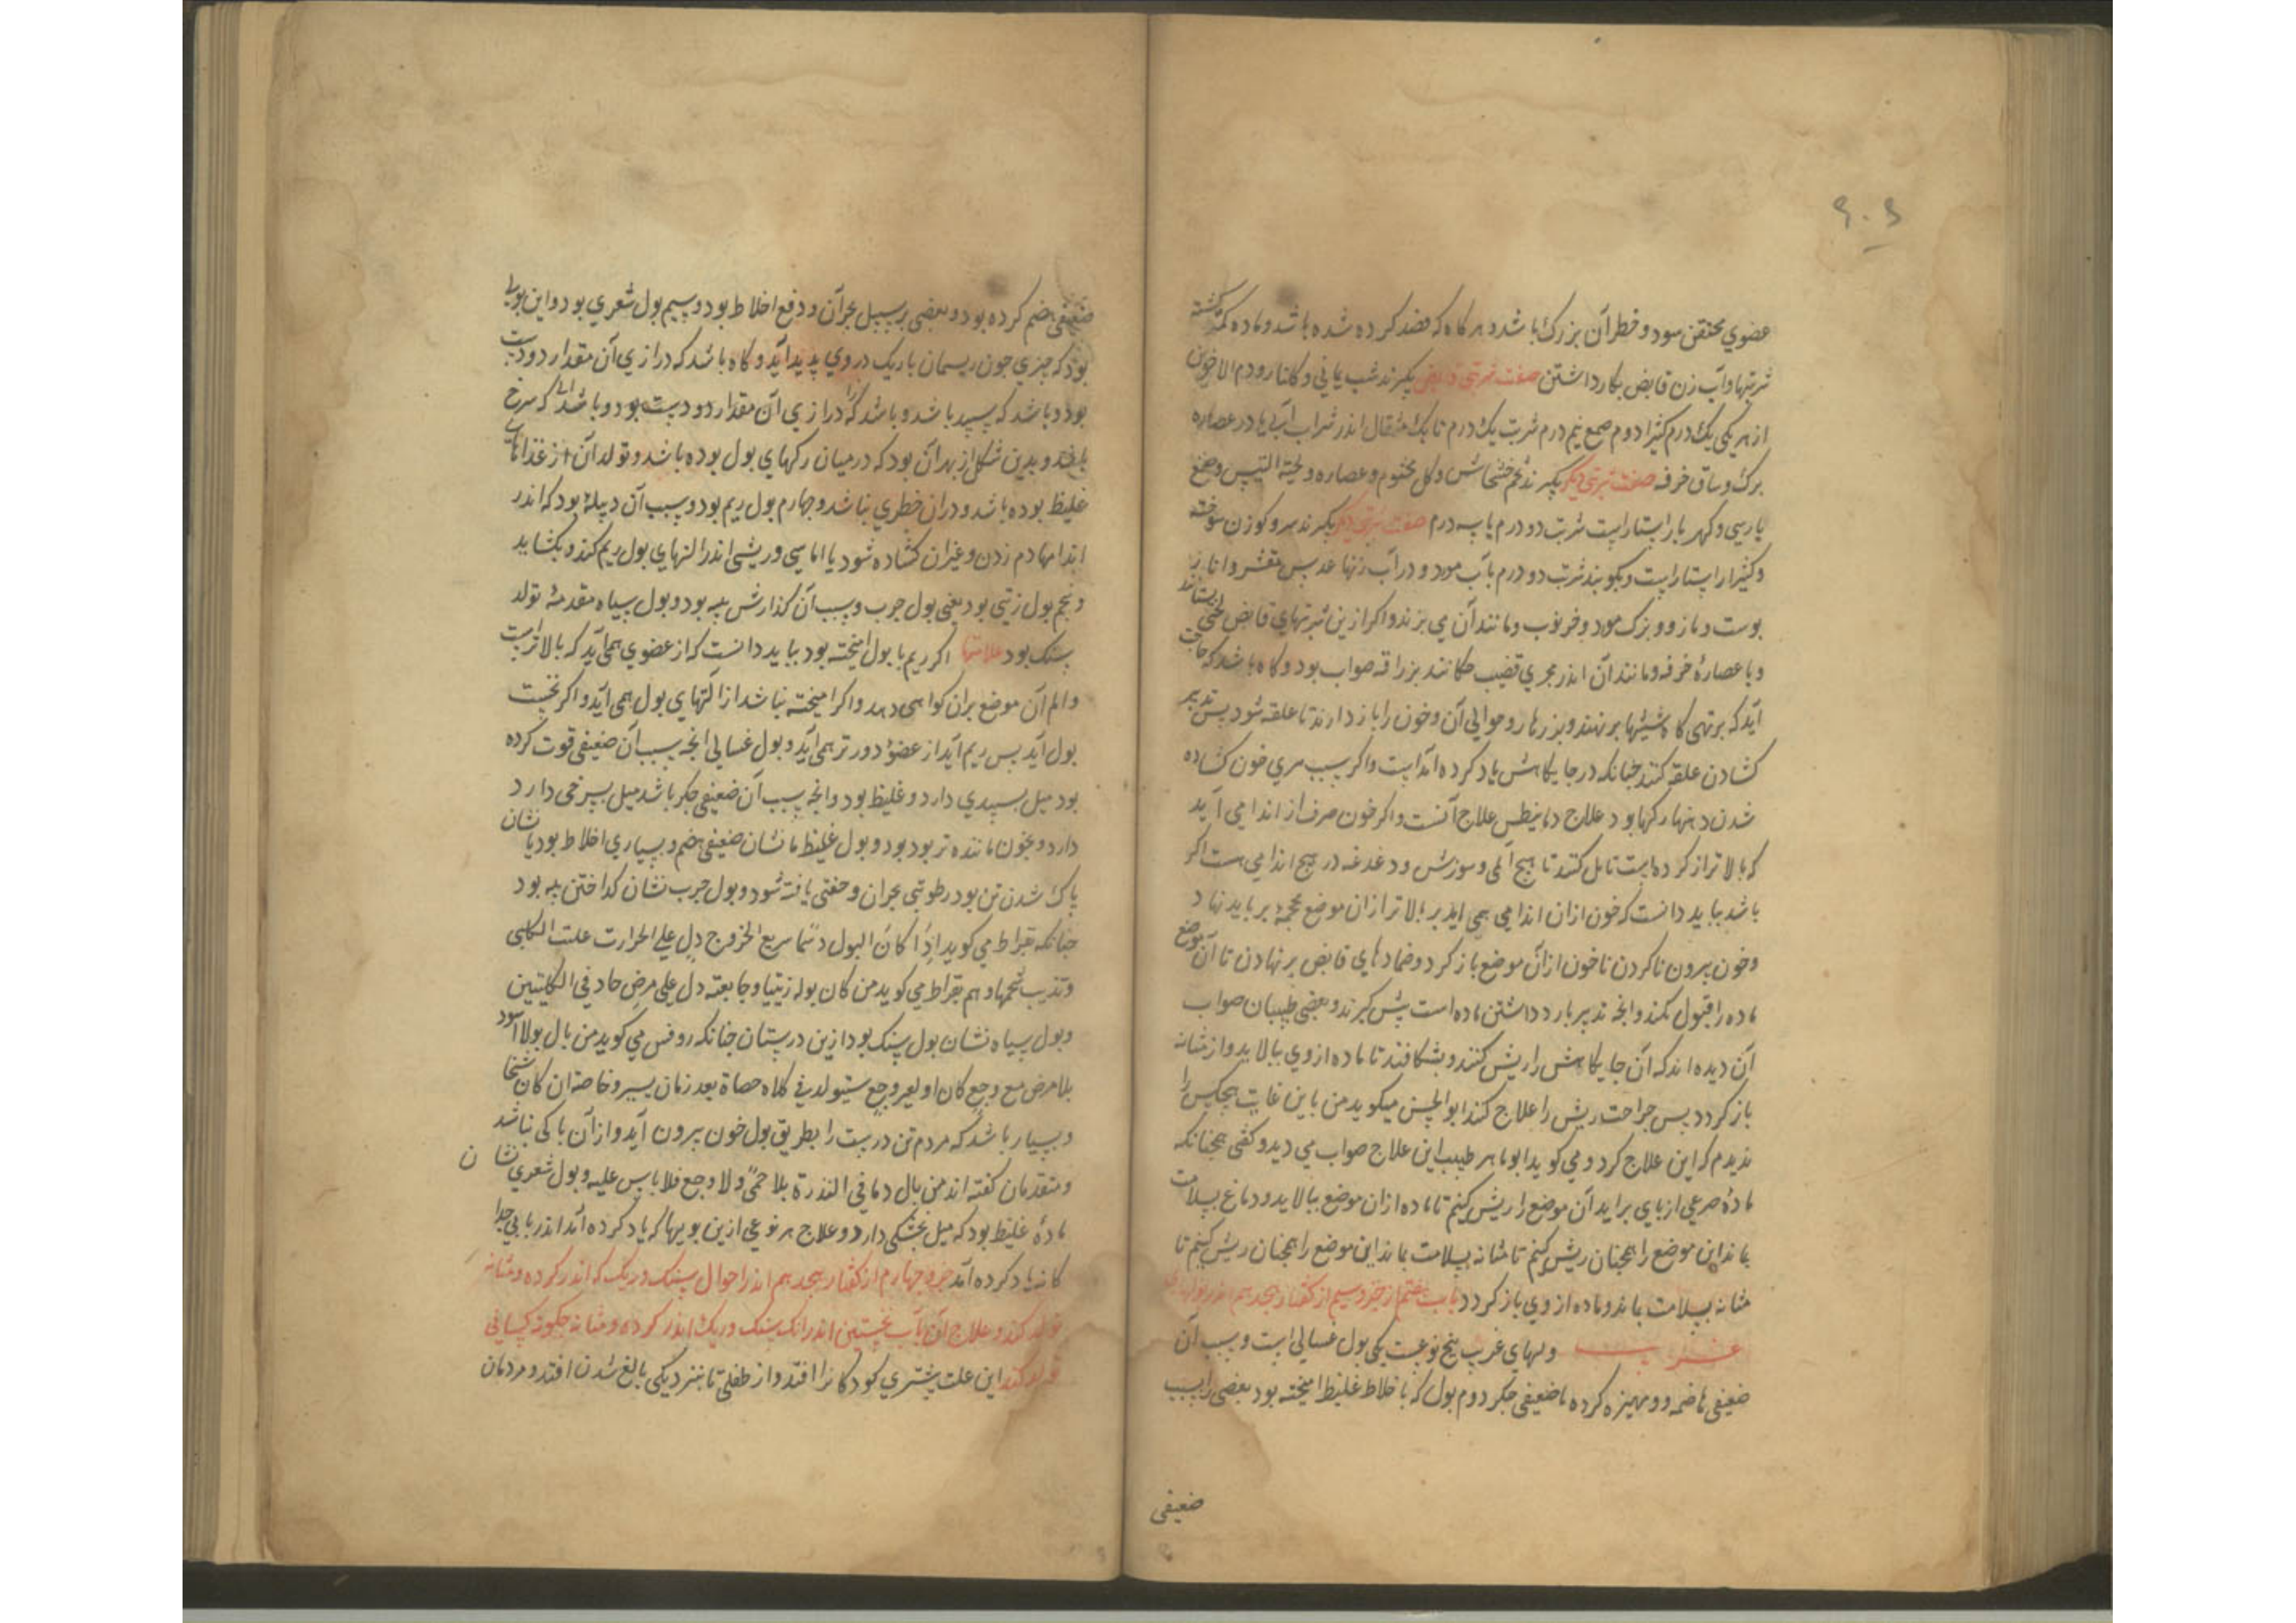 ۶۰۶
عضوي محتقن سود و خطر آن بزرگ باشد و هر کاه که فصد کرده شده باشد و ماده کمتر کشته
شربتها و آب زن قابض بکار داشتن صفت شربتی قابض بکیرند شب یمانی و کلنار و دم الاخوین
از هر یکی یک درم کثیرا دوم صمغ نیم درم شربت یک درم تا یک مثقال اندر شراب آبی یا در عصاره
برک و ساق خرفه صفت شربتی دیکر بکیرند تخم خشخاش و کل مختوم و عصاره و لحیة التیس وصمغ
پارسی و کهربا راستاراست شربت دو درم یا سه درم صفت شربتی دیکر بکیرند سرو کوزن سوخته
و کثیرا راستاراست و بکوبند شربت دو درم بآب مورد و در آب زنها عدس مقشر و انار
پوست و مازو و برک مورد و خرنوب و مانند آن می بزند و اکر ازین شربتهای قابض لختی بستانند
و با عصارۀ خرفه و مانند آن اندر مجری قضیب چکانند بزراقه صواب بود و کاه باشد که حاجت
آید که بر تهی کاه شیشها برنهند و بزهار و حوالی آن و خون را باز دارند تا علقه شود پس تدبیر
کشادن علقه کنند چنانکه در جایکاهش یاد کرده آمد است و اکر سبب مری خون کشاده
شدن دهنها رکها بود علاج دیانیطس علاج آنست و اکر خون صرف از اندامی آید
که بالاتر از کرده است تامل کنند تا هیچ المی و سوزش و دغدغه در هیچ اندامی هست اکر
باشد بباید دانست که خون ازان اندامی همی اید بر بالاتر ازان موضع محجمه برباید نهاد
و خون بیرون ناکردن تا خون ازان موضع باز کردد و ضمادهای قابض بر نهادن تا آن موضع
ماده را قبول نکند وانچه تدبیر بازداشتن ماده است پش کیرند و بعضی طبیبان صواب
آن دیده اند که آن جایکاهش را ریش کنند و بشکافند تا ماده ازوی بپالاید و از مثانه
باز کردد پس جراحت ریش را علاج کند ابوالحسن میکوید من باین غایت هیچکس را
ندیدم که این علاج کرد و می کوید ابوماهر طبیب این علاج صواب می دید و کفتی همچنانکه
مادۀ صرعی از پای براید آن موضع را ریش کنیم تا ماده ازان موضع بپالاید و دماغ بسلامت
بماند این موضع را همچنان ریش کنیم تا مثانه بسلامت بماند این موضع را همچنان ریش کنیم تا
مثانه بسلامت بماند و ماده ازوی باز کردد باب هفتم از جزو سیم از کفتار هجدهم اندر بولهای
غریب بولهای غریب پنج نوعست یکی بول غسالی است و سبب آن
ضعیفی هاضمه و ممیزه کرده یا ضعیفی جکر دوم بول که با خلاط غلیظ امیخته بود بعضی را سبب
ضعیفی
ضعیفی هضم کرده بود و بعضی بر سبیل بحران و دفع اخلاط بود و سیم بول شعری بود و این بولی
بود که چیزی چون ریسمان باریک در وی پدید آید و کاه باشد که درازی آن مقدار دو دست
بود و باشد که سپید باشد و باشد که درازی آن مقدار دو دست بود و باشد که سرخ
باشد و بدین شکل از بهر آن بود که در میان رکهای بول بوده باشد و تولد آن از غذاهای
غلیظ بوده باشد و دران خطری نباشد و چهارم بول ریم بود و سبب آن دبیله بود که اندر
اندامها دم زدن و غیر ان کشاده شود یا اماسی و ریشی اندر التهای بول ریم کند و بکشاید
و پنجم بول زیتی بود یعنی بول چرب و سبب آن کدازش پیه بود و بول سیاه مقدمۀ تولد
سنک بود علامتها اکر ریم با بول امیخته بود بباید دانست که از عضوی همی آید که بالاتر است
و الم آن موضع بران کواهی دهد و اکر امیخته نباشد از آلتهای بول همی آید و اکر نخست
بول آید پس ریم آید از عضو دورتر همی آید و بول غسالی انچه سبب آن ضعیفی قوت کرده
بود میل بسپیدی دارد و غلیظ بود و انچه سبب آن ضعیفی جکر باشد میل بسرخی دارد
دارد و بخون ماننده تر بود بود و بول غلیظ یا نشان ضعیفی هضم و بسیاری اخلاط بود یا نشان
پاک شدن تن بود رطوبتی بحران و خفتی یافته شود و بول چرب نشان کداختن پیه بود
چنانکه بقراط می کوید اذا کان البول دسما سریع الخروج دل علی الحرارت علت الکلی
و تذیب شحمها و هم بقراط می کوید من کان بوله زیتیا وجا بعته دل علی مرض حاد فی الکلیتین
و بول سیاه نشان بول سنک بود ازین درستان چنانکه روفس می کوید من بال بولا اسود
بلا مرض مع وجع کان او لغیر وجع سیتولد فی کلاه حصاة بعد زمان یسیر و خاصة ان کان شیخا
و بسیار باشد که مردم تن درست را بطریق بول خون بیرون آید و ازان باکی نباشد
و متقدمان کفته اند من بال دما فی الندرة بلا حمی ولا وجع فلا باس علیه و بول شعری نشان
مادۀ غلیظ بود که میل بخشکی دارد و علاج هر نوعی ازین بویها که یاد کرده آمد اندر بابی جدا
کانه یاد کرده آمد جزو چهارم از کفتار هجدهم اندر احوال سنک و ریک که اندر کرده و مثانه
تولد کند و علاج آن باب نخستین اندر انک سنک و ریک اندر کرده و مثانه چکونه کسانی
تولد کند این علت پشتری کودکانرا افتد و از طفلی تا بنزدیکی بالغ شدن افتد و مردمان